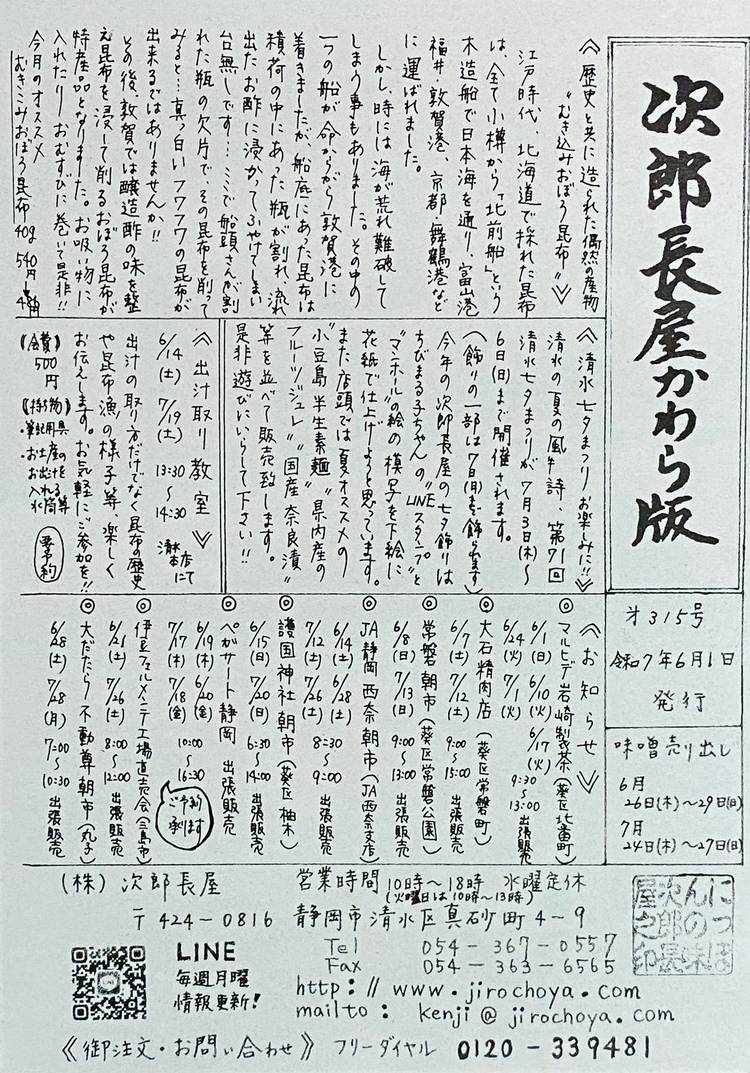 次郎長屋かわら版
才315号
令和7年6月1日
発行
味噌売り出し
6月
26日(木)〜29日(日)
7月
24日(木)〜27日(日)
《歴史と共に造られた偶然の産物
"むき込みおぼろ昆布"》
江戸時代、北海道で採れた昆布
は、全て小樽から「北前船」という
木造船で日本海を通り、富山港
福井・敦賀港、京都・舞鶴港など
に運ばれました。
しかし、時には海が荒れ難破して
しまう事もありました。その中の
一つの船が命からがら敦賀港に
着きましたが、船底にあった昆布は
積荷の中にあった瓶が割れ、流れ
出たお酢に浸かってふやけてしまい
台無しです…ここで船頭さんが割
れた瓶の欠片で、その昆布を削って
みると…真っ白いフワフワの昆布が
出来るではありませんか!!
その後、敦賀では醸造酢の味を整
え昆布を浸して削るおぼろ昆布が
特産品となりました。お吸い物に
入れたり、おむすびに巻いて是非!!
今月のオススメ
むきこみおぼろ昆布 40g 540円→
《清水七夕まつりお楽しみに!!》
清水の夏の風物詩、第71回
清水七夕まつりが7月3日(木)〜
6日(日)まで開催されます。
(飾りの一部は7日(月)まで飾られます)
今年の次郎長屋の七夕飾りは
ちびまる子ちゃんの"LINEスタンプ"と
"マンホール"の絵の模写を下絵に
花紙で仕上げようと思っています。
また店頭では夏オススメの
"小豆島半生素麺""県内産の
フルーツジュレ""国産奈良漬"
等を並べて販売致します。
是非遊びにいらして下さい!!
《出汁取り教室》
6/14(土) 7/19(土)
13:30〜14:30
清水本店にて
出汁の取り方だけでなく昆布の歴史
や昆布漁の様子等、楽しく
お伝えします。お気軽にご参加を!!
《会費》
500円
《持ち物》
・筆記用具
・お土産の
お出汁を
入れる
水筒等
要予約
《お知らせ》
◎マルヒデ岩崎製茶(葵区北番町)
6/1(日) 6/10(火) 6/17(火)
6/24(火) 7/1(火) 9:30〜13:00 出張販売
◎大石精肉店(葵区常磐町)
6/7(土) 7/12(土) 9:00〜15:00 出張販売
◎常磐朝市(葵区常磐公園)
6/8(日) 7/13(日) 9:00〜13:00 出張販売
◎JA静岡西奈朝市(JA西奈支店)
6/14(土) 6/28(土)
7/12(土) 7/26(土) 8:30〜9:00 出張販売
◎護国神社朝市(葵区柚木)
6/15(日) 7/20(日) 6:30〜14:00 出張販売
◎ペガサート静岡 出張販売
6/19(木) 6/20(金)
7/17(木) 7/18(金) 10:00〜16:30
ご予約承ります
◎伊豆フェルメンテ工場直売会(三島市)
6/21(土) 7/26(土) 8:00〜12:00 出張販売
◎大だたら不動尊朝市(丸子)
6/28(土) 7/28(月) 7:00〜10:30 出張販売
(株)次郎長屋
営業時間 10時〜18時 水曜定休
(火曜日は10時〜13時)
〒424-0816 静岡市清水区真砂町4-9
Tel 054-367-0557
Fax 054-363-6565
http://www.jirochoya.com
mailto: kenji@jirochoya.com
LINE
毎週月曜
情報更新!
LINE
にっぽ
んの味
次郎長
屋之印
《御注文・お問い合わせ》 フリーダイヤル 0120-339481